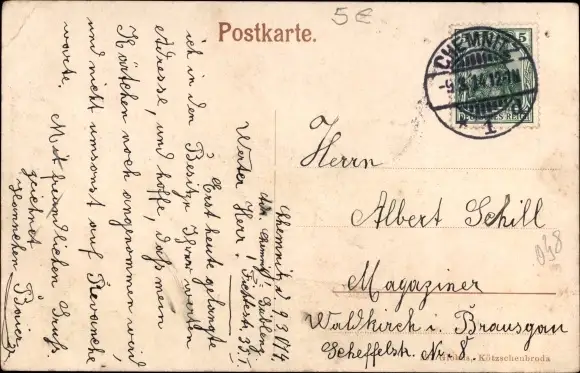 5€
Postkarte.
5
CHEMNITZ
-9.3.14.12-1N
* 1 d
DEUTSCHES REICH
Chemnitz d. 9.3.1914.
Adr. Chemnitz
Fichtestr. 35.I
Werter Herr!
Erst heute gelangte
ich in den Besitz Ihrer werten
Adresse, und hoffe, daß mein
Kärtchen noch angenommen wird,
und nicht umsonst auf Revanche
warte.
Mit freundlichen Gruß
zeichnet
Hannchen
Herrn
Albert Schill
Magaziner
Waldkirch i. Brausgau
Scheffelstr. Nr. 8.
Kötzschenbroda